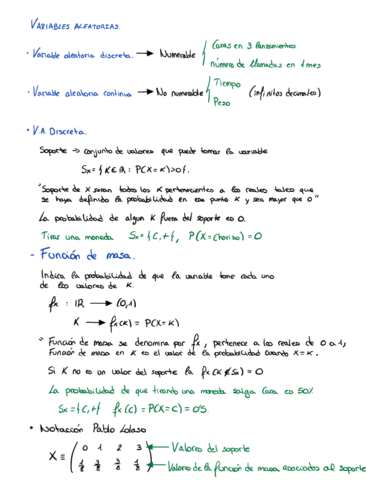 VARIABLES ALEATORIAS.
· Variable aleatoria discreta. → Numerable { Caras en 3 lanzamientos
número de llamadas en 1 mes
· Variable aleatoria continua → No numerable { Tiempo (infinitos decimales)
Peso
· V.A Discreta.
Soporte → conjunto de valores que puede tomar la variable
Sx = { K ∈ ℝ : P(X = K) > 0 }.
"Soporte de X serán todos los K pertenecientes a los reales tales que
se haya definido la probabilidad en ese punto K y sea mayor que 0"
La probabilidad de algun K fuera del soporte es 0.
Tirar una moneda Sx = {C, +}, P(X = Chorizo) = 0
- Función de masa.
Indica la probabilidad de que la variable tome cada uno
de los valores de K.
fx : ℝ → (0,1)
K → fx(K) = P(X = K)
" Función de masa se denomina por fx, pertenece a los reales de 0 a 1,
Función de masa en K es el valor de la probabilidad cuando X = K.
Si K no es un valor del soporte la fx (K ∉ Sx) = 0
La probabilidad de que tirando una moneda salga cara es 50%
Sx = {C, +} fx (C) = P(X = C) = 0'5.
· Notación Pablo
X ≡ ( 0 1 2 3 ) ← Valores del soporte
1/8 3/8 3/8 1/8 ← Valores de la función de masa asociados al soporte